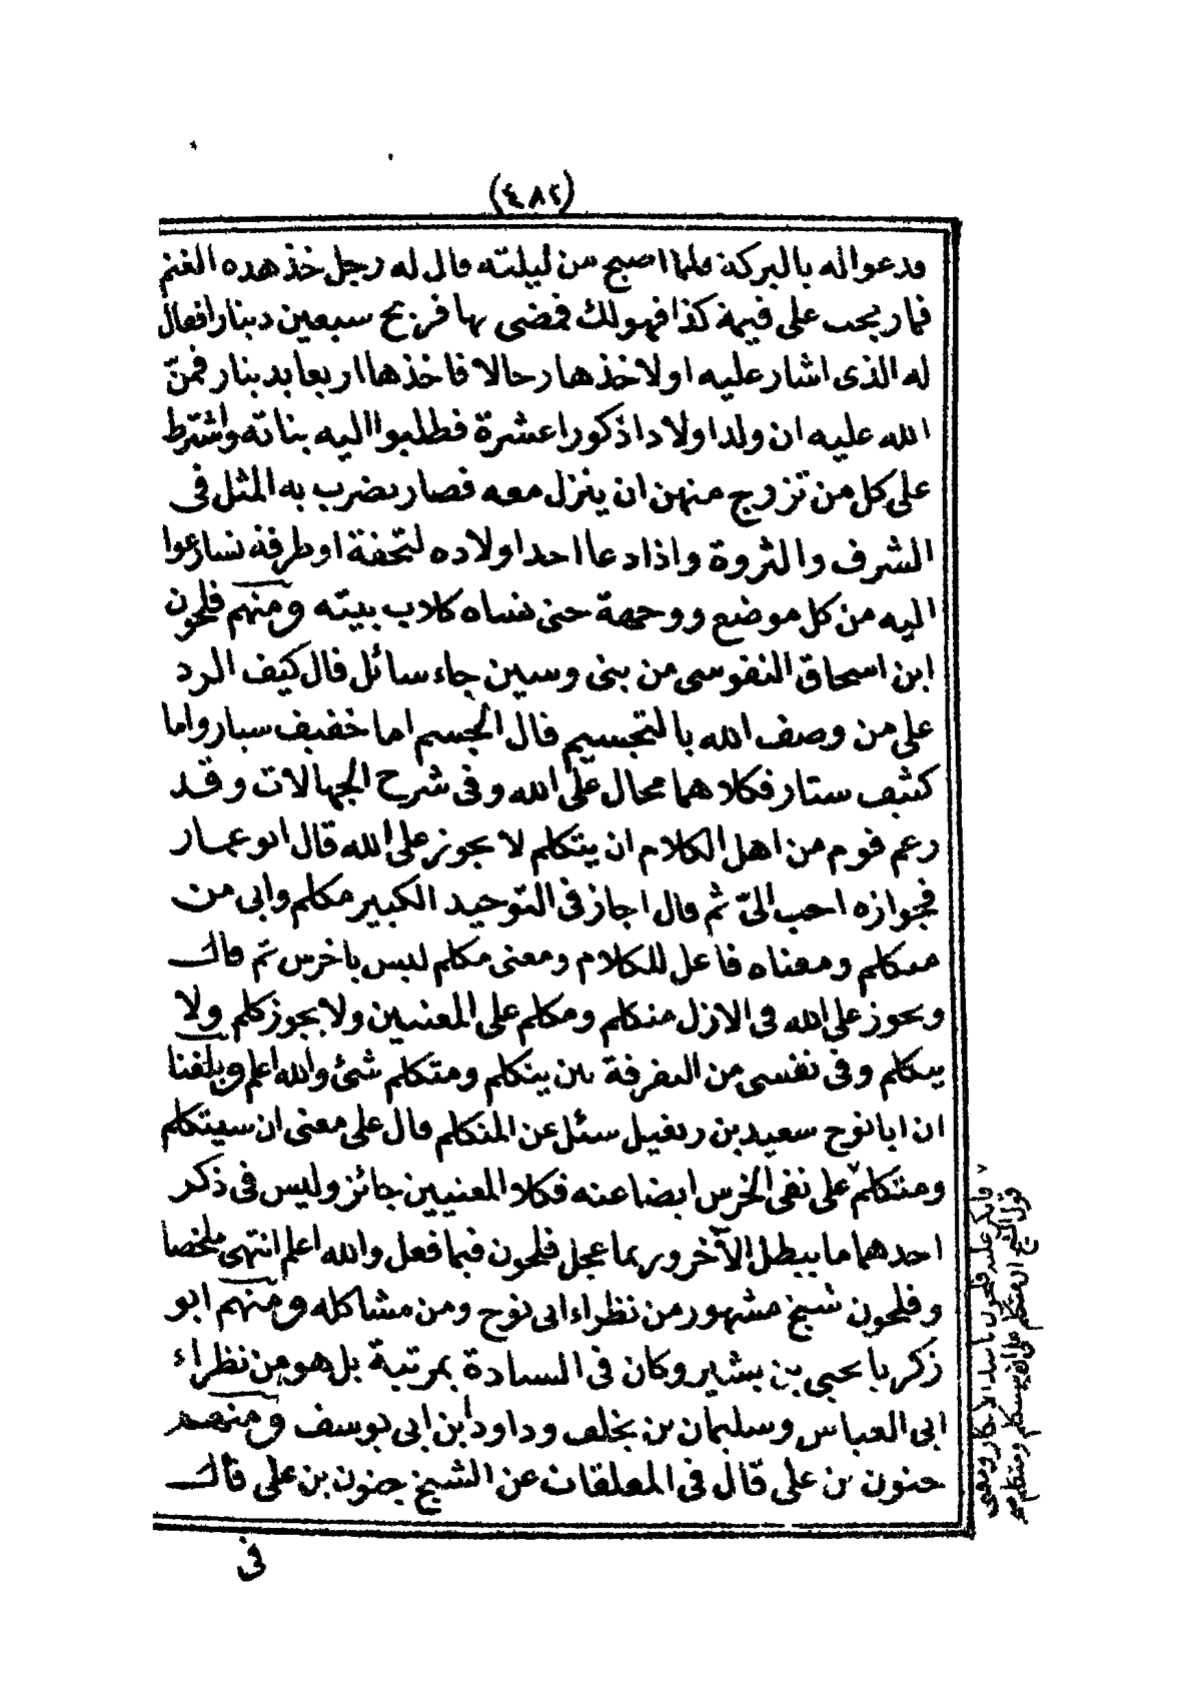 (٤٨٢)
فدعوا له بالبركة فلما اصبح من ليلته قال له رجل خذ هذه الغنم
فمار بحت على قيمة كذا فهو لك فمضى بها فربح سبعين دينارا فقال
له الذى اشار عليه اولا خذها رحالا فاخذها اربعا بدينار فمنّ
الله عليه ان ولد اولادا ذكورا عشرة فطلبوا اليه بناته واشترط
على كل من تزوج منهن ان ينزل معه فصار يضرب به المثل فى
الشرف والثروة واذا دعا احد اولاده لتحفة او طرفة تسارعوا
اليه من كل موضع ووجهة حتى نساه كلاب بيته ومنهم فلحون
ابن اسحاق النفوسى من بنى وسين جاء سائل قال كيف الرد
على من وصف الله بالتجسيم قال الجسم اما خفيف سيار واما
كثيف ستار فكلاهما محال على الله وفى شرح الجهالات وقد
زعم قوم من اهل الكلام ان يتكلم لا يجوز على الله قال ابو عمار
فجوازه احب الىّ ثم قال اجاز فى التوحيد الكبير مكلم وابى من
متكلم ومعناه فاعل للكلام ومعنى مكلم ليس باخرس ثم قال
ويجوز على الله فى الازل متكلم ومكلم على المعنيين ولا يجوز كلم ولا
يتكلم وفى نفسى من التفرقة بين يتكلم ومتكلم شئ والله اعلم وبلغنا
ان ابا نوح سعيد بن زنغيل سئل عن المتكلم قال على معنى ان سيتكلم
ومتكلم على نفى الخرس ايضا عنه فكلا المعنيين جائز وليس فى ذكر
احدهما ما يبطل الآخر وربما عجل فلحون فيما فعل والله اعلم انتهى ملخصا
وفلحون شيخ مشهور من نظراء ابى نوح ومن مشاكله ومنهم ابو
زكرياء يحيى بن بشير وكان فى السادة بمرتبة بل هو من نظراء
ابى العباس وسليمان بن يخلف وداود ابن ابى يوسف ومنهم
جنون بن على قال فى المعلقات عن الشيخ جنون بن على قال
فى
فانكر عليه فلحون باشد الانكار ومعنى
قول الشيخ ان متكلم على ان سيتكلم ومتكلم